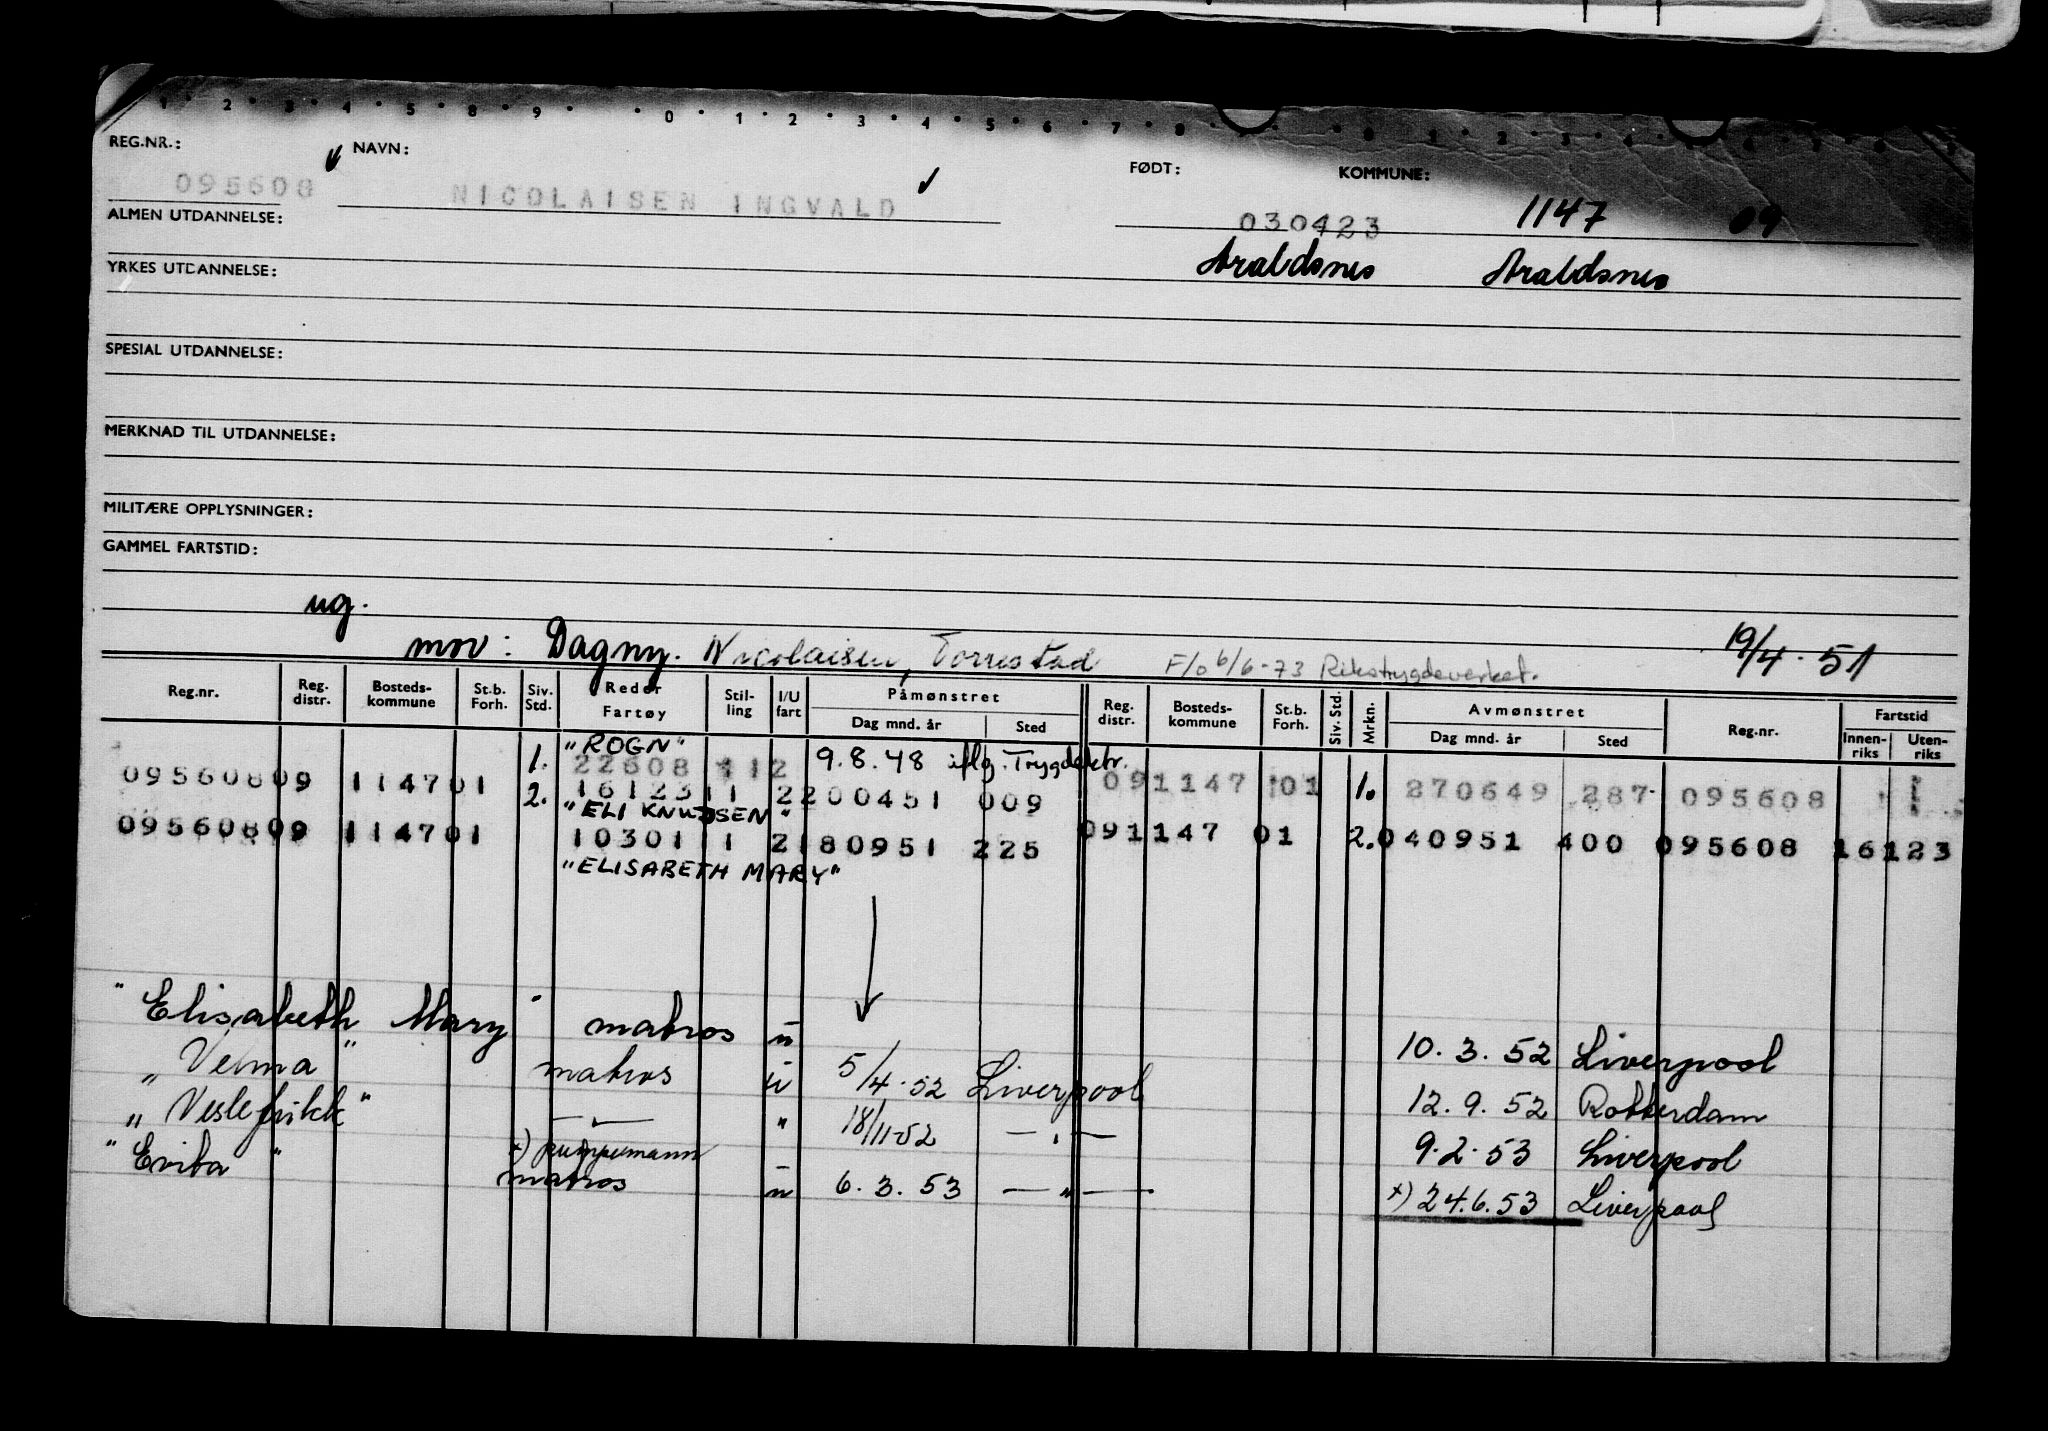 1 2 3 4 5 8 9 0 1 2 3 4 5 6 7 8
REG.NR.: NAVN: FØDT: KOMMUNE:
095608 NICOLAISEN INGVALD 030423 1147 09
ALMEN UTDANNELSE: Avaldsnes Avaldsnes
YRKES UTDANNELSE:
SPESIAL UTDANNELSE:
MERKNAD TIL UTDANNELSE:
MILITÆRE OPPLYSNINGER:
GAMMEL FARTSTID:
ug.
mor: Dagny. Nicolaisen, Torrestad F/o 6/6-73 Rikstrygdeverket. 19/4.51
Reg.nr. Reg. distr. Bosteds-kommune St.b. Forh. Siv. Std. Reder Fartøy Stil-ling I/U fart Påmønstret Dag mnd. år Sted Reg. distr. Bosteds-kommune St.b. Forh. Siv. Std. Mrkn. Avmønstret Dag mnd. år Sted Reg.nr. Fartstid Innen-riks Uten-riks
"ROGN"
1. 22608 112 9.8.48 iflg. Trygdektr.
09560809 114701 2. 1612311 2200451 009 091147 01 1. 270649 287 095608
"ELI KNUDSEN"
09560809 114701 10301 1 2180951 225 091147 01 2. 040951 400 095608 16123
"ELISABETH MARY"
"Elisabeth Mary" matros u 10.3.52 Liverpool
"Velma" matros u 5/4.52 Liverpool 12.9.52 Rotterdam
"Veslefrikk" —"— " 18/11-52 —"— 9.2.53 Liverpool
x) pumpemann
"Evita" matros u 6.3.53 —"— x) 24.6.53 Liverpool